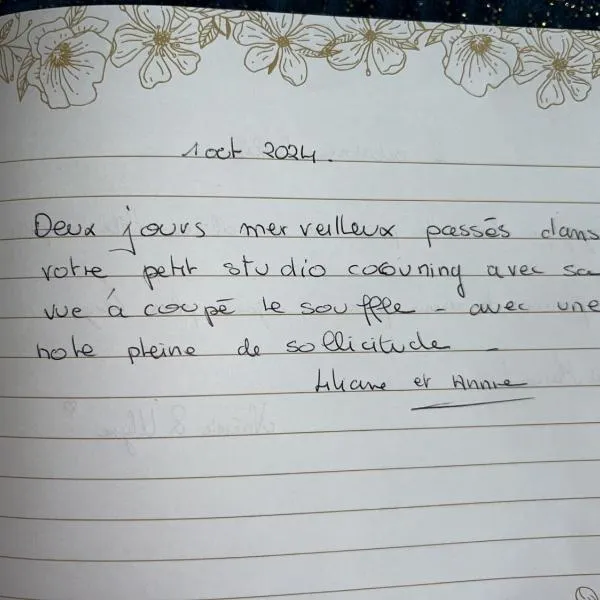 1 oct 2024.
Deux jours merveilleux passés dans
votre petit studio cocuning avec sa
vue à coupé le souffle - avec une
hote pleine de sollicitude -
Liliane et Annie